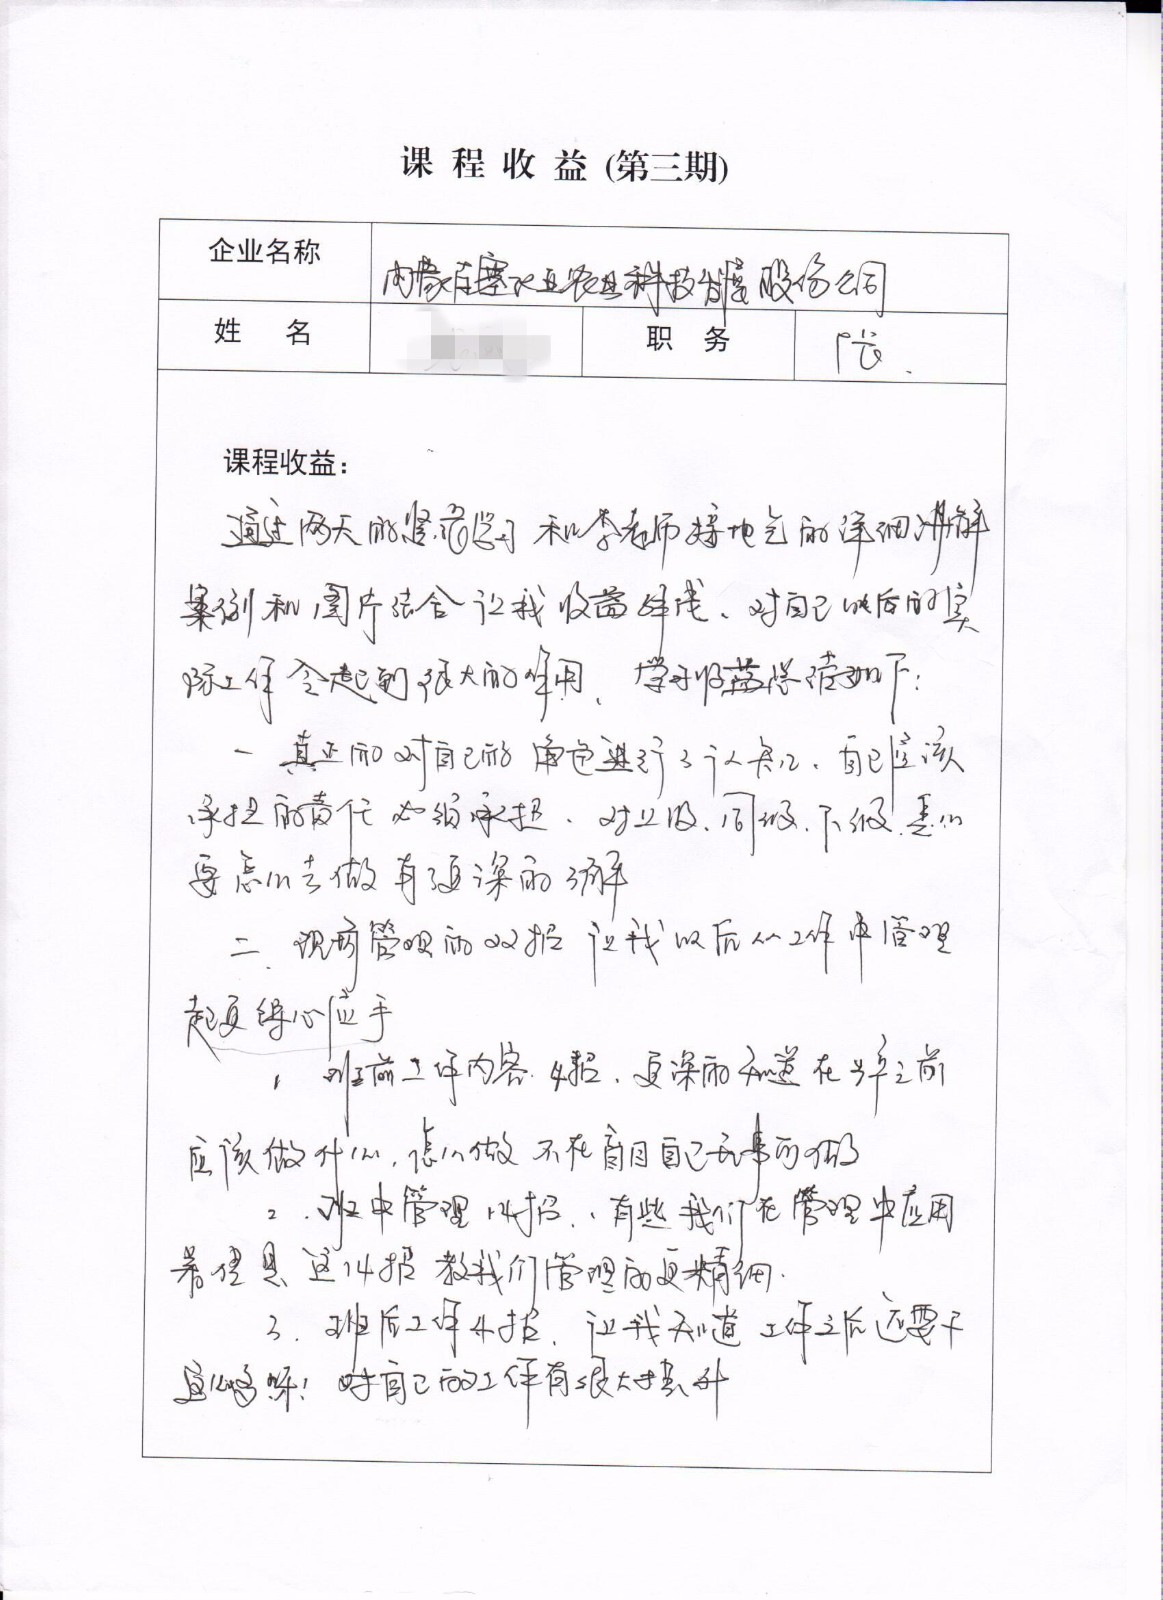 课程收益(第三期)
企业名称
内蒙古塞北星农业科技发展股份公司
姓 名
职 务
长.
课程收益：
通过两天的 学习 和李老师接地气的详细讲解
案例和图片结合 让我收益 、对自己以后的实
际工作会起到很大的作用、学习收益总结如下：
一 真正的对自己的角色进行了认知、自己应该
承担的责任必须承担、对上级、同级、下级
要怎么去做有了更深的了解
二、现场管理的 招 让我以后从工作中管理
起更得心应手
1 班前工作内容4招、更深的知道在 之前
应该做什么，怎么做 不在盲目自己无事可做
2、班中管理14招、有些我们在管理中应用
着 但是 这14招教我们管理的更精细.
3、班后工作4招、让我知道工作之后还要干
 ！对自己的工作有很大提升